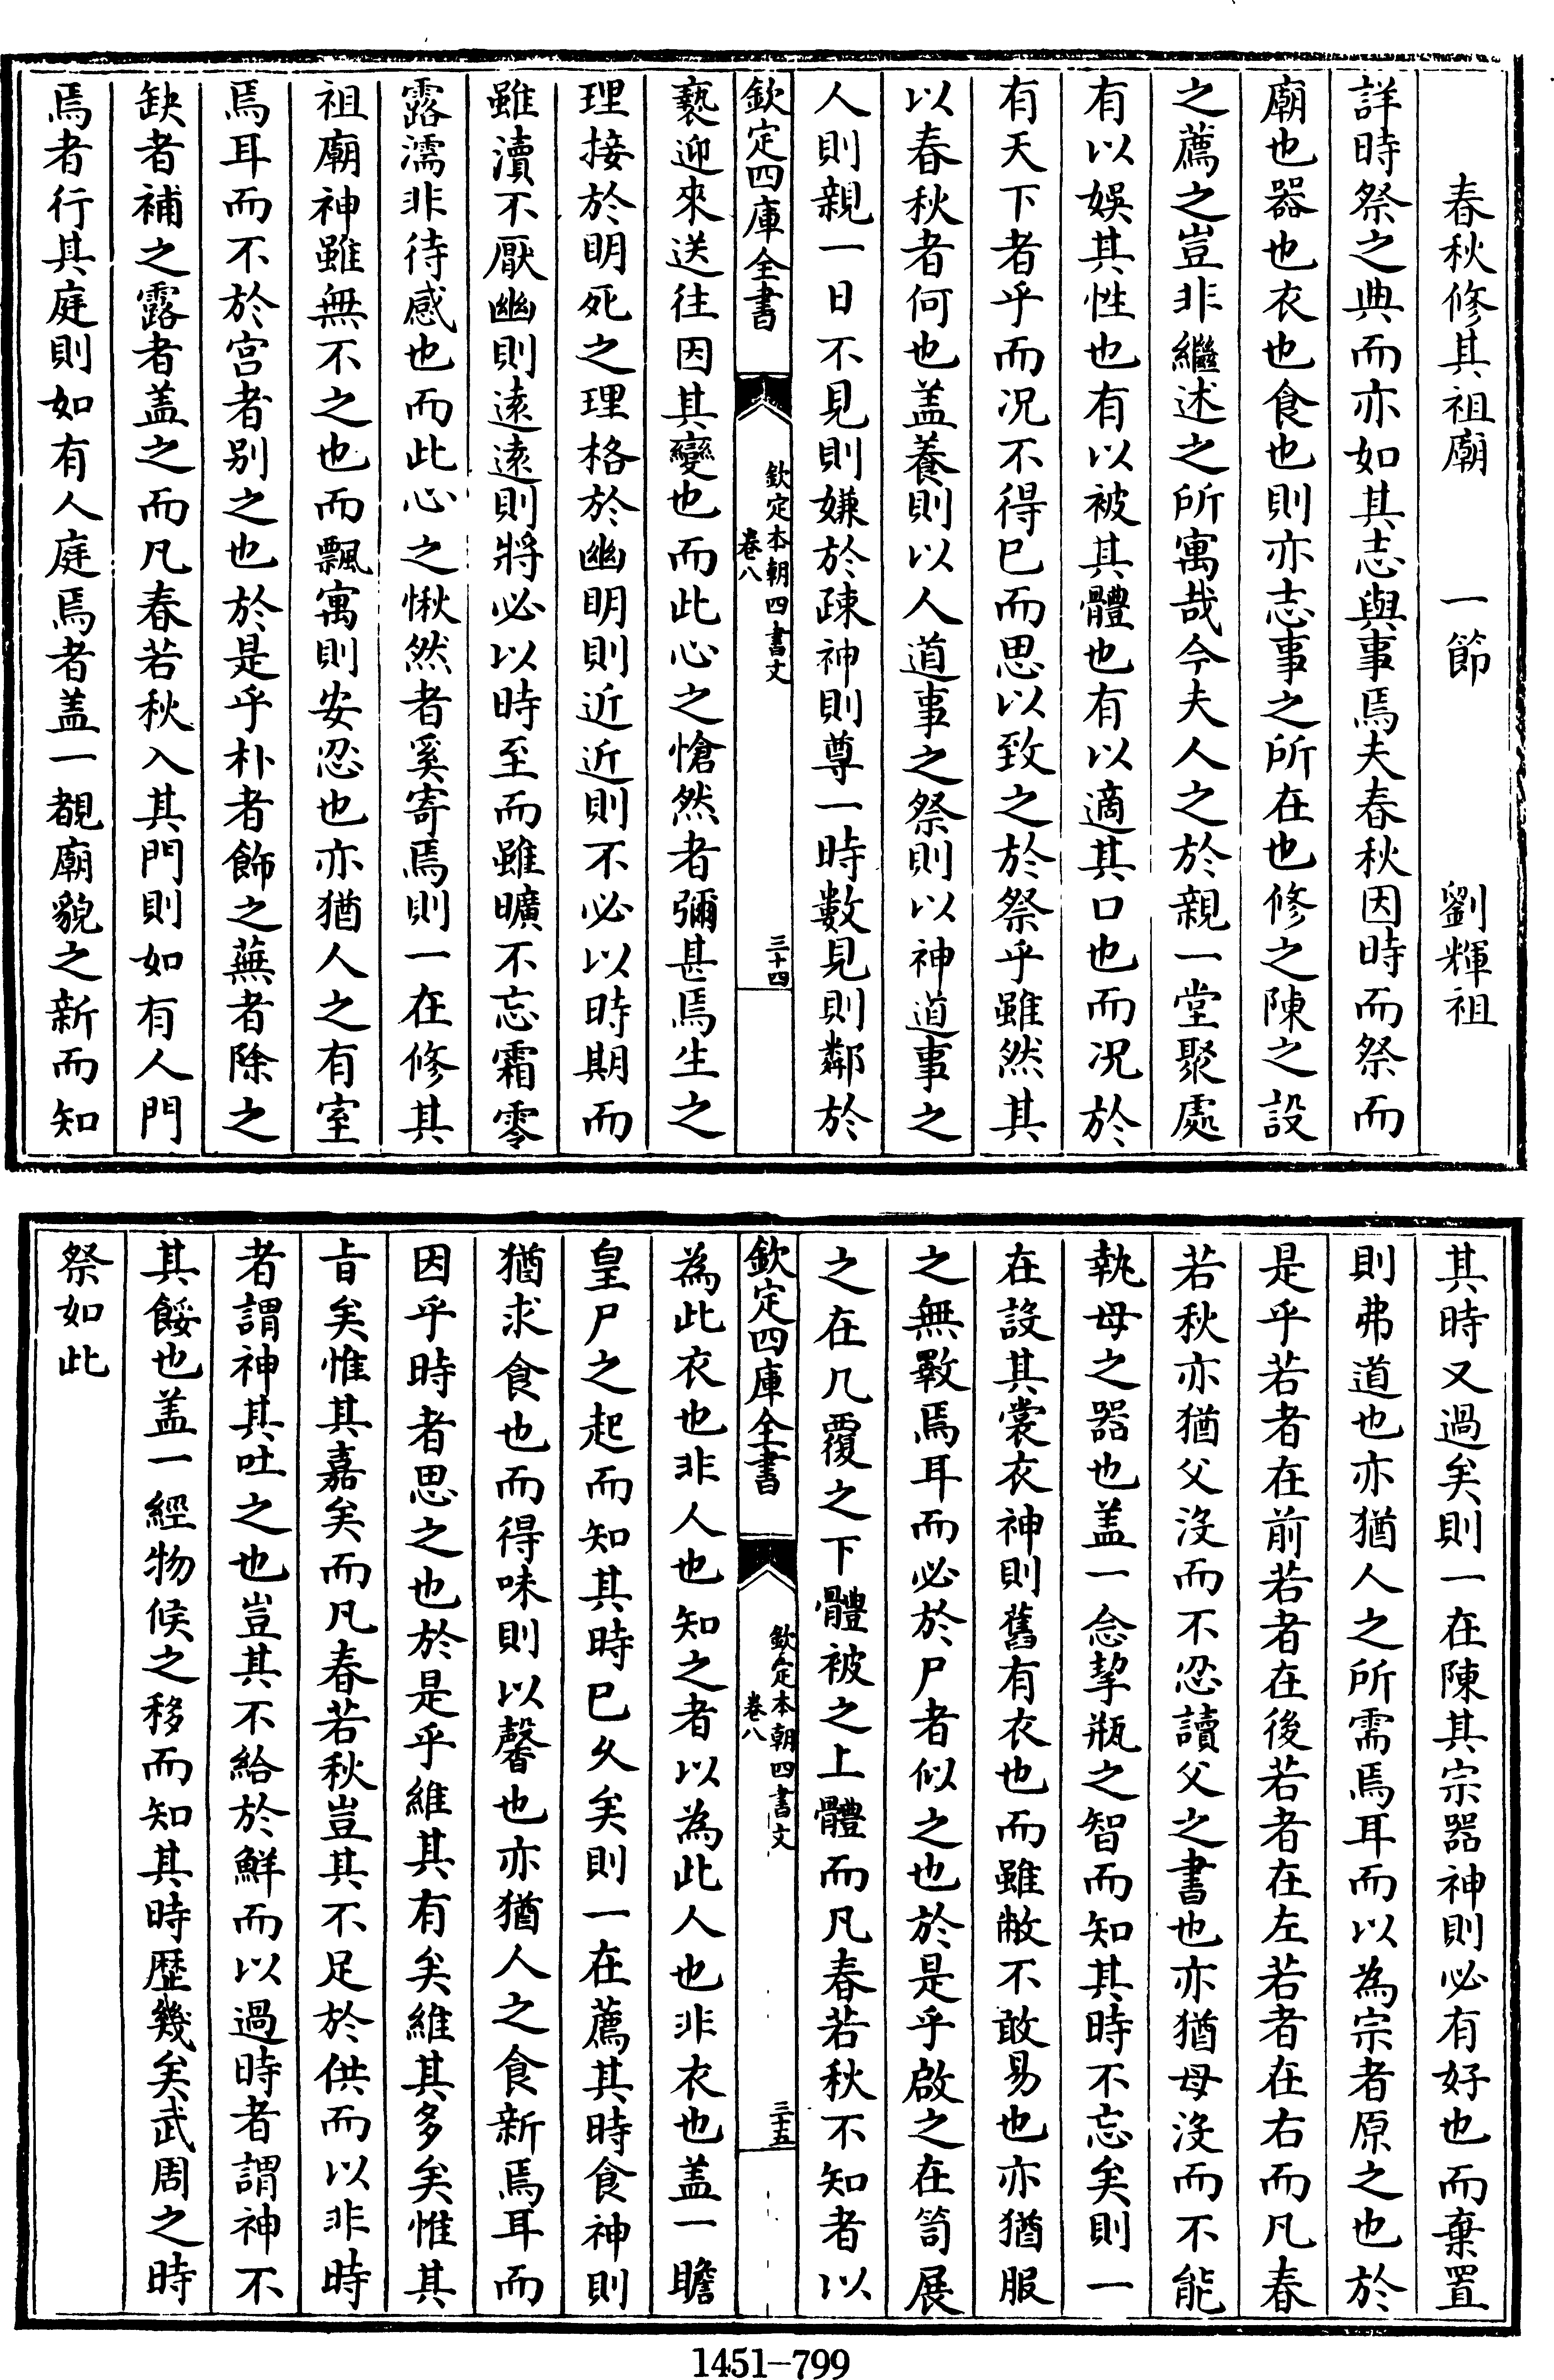 春秋修其祖廟　一節　劉輝祖
詳時祭之典而亦如其志與事焉夫春秋因時而祭而
廟也器也衣也食也則亦志事之所在也修之陳之設
之薦之豈非繼述之所寓哉今夫人之於親一堂聚處
有以娛其性也有以被其體也有以適其口也而况於
有天下者乎而况不得已而思以致之於祭乎雖然其
以春秋者何也盖養則以人道事之祭則以神道事之
人則親一日不見則嫌於疎神則尊一時數見則鄰於
欽定四庫全書
欽定本朝四書文
卷八
三十四
褻迎來送往因其變也而此心之愴然者彌甚焉生之
理接於明死之理格於幽明則近近則不必以時期而
雖瀆不厭幽則遠遠則將必以時至而雖曠不忘霜零
露濡非待感也而此心之愀然者奚寄焉則一在修其
祖廟神雖無不之也而飄寓則安忍也亦猶人之有室
焉耳而不於宫者别之也於是乎朴者飾之蕪者除之
缺者補之露者盖之而凡春若秋入其門則如有人門
焉者行其庭則如有人庭焉者盖一覩廟貌之新而知
其時又過矣則一在陳其宗器神則必有好也而棄置
則弗道也亦猶人之所需焉耳而以為宗者原之也於
是乎若者在前若者在後若者在左若者在右而凡春
若秋亦猶父沒而不忍讀父之書也亦猶母沒而不能
執母之器也盖一念挈瓶之智而知其時不忘矣則一
在設其裳衣神則舊有衣也而雖敝不敢易也亦猶服
之無斁焉耳而必於尸者似之也於是乎啟之在笥展
之在几覆之下體被之上體而凡春若秋不知者以
欽定四庫全書
欽定本朝四書文
卷八
三十五
為此衣也非人也知之者以為此人也非衣也盖一瞻
皇尸之起而知其時已久矣則一在薦其時食神則
猶求食也而得味則以馨也亦猶人之食新焉耳而
因乎時者思之也於是乎維其有矣維其多矣惟其
旨矣惟其嘉矣而凡春若秋豈其不足於供而以非時
者謂神其吐之也豈其不給於鮮而以過時者謂神不
其餒也盖一經物候之移而知其時歴幾矣武周之時
祭如此
1451-799